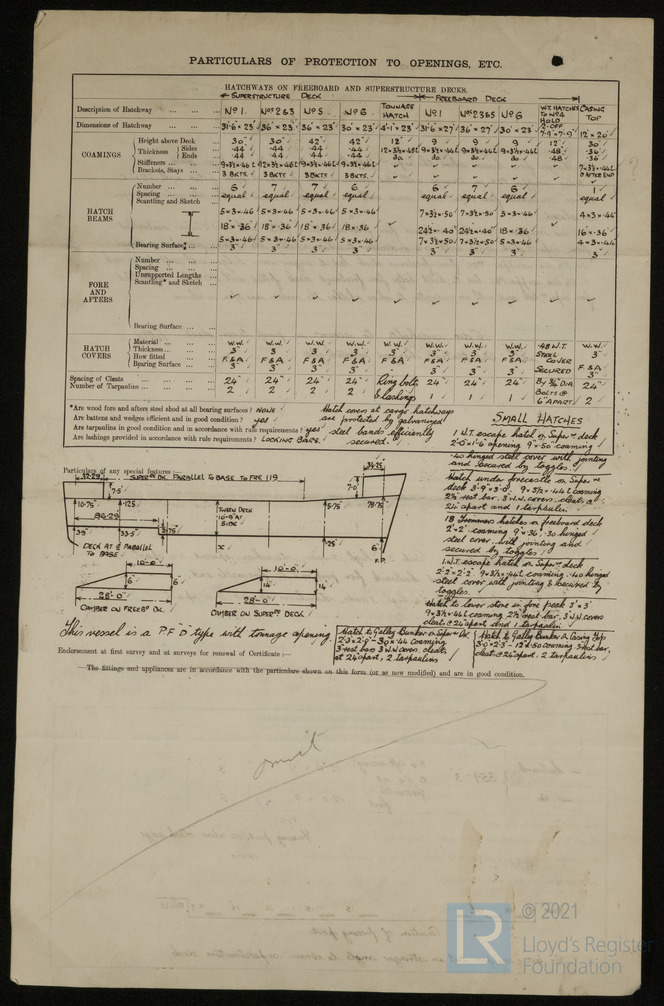 PARTICULARS OF PROTECTION TO OPENINGS, ETC.
HATCHWAYS ON FREEBOARD AND SUPERSTRUCTURE DECKS.
SUPERSTRUCTURE DECK FREEBOARD DECK
Description of Hatchway Nº 1. Nos 2&3 Nº 5 Nº 6. TONNAGE HATCH Nº 1 Nos 2 3&5 Nº 6 W.T. HATCHES TO Nº4 HOLD CASING TOP
Dimensions of Hatchway 31'-6" × 23' 36' × 23' 36' × 23' 30' × 23' 4'-1" × 23' 31'-6 × 27' 36' × 27' 30' × 23' 2-OFF 7'-9" × 7'-9" 12' × 20'
COAMINGS
Height above Deck 30" 30" 42" 42" 12" 9 9 9 12" 30"
Thickness Sides .44 .44 .44 .44 .48 .36
Ends .44 .44 .44 .44 do. do. do. .48 .36
Stiffeners
Brackets, Stays 3 BKTS. 3 BKTS 3 BKTS 3 BKTS.
HATCH BEAMS
Number 6 7 7 6 6 7 6 1
Spacing equal equal equal equal equal equal equal equal
Scantling and Sketch
5×3×.46 5×3×.46 5×3×.46 5×3×.46 7×3½×.50 7×3½×.50 5×3×.46 4×3×.44
18×.36 18×.36 18×.36 18×.36 24½×.40 24½×.40 18×.36 16×.36
5×3×.46 5×3×.46 5×3×.46 5×3×.46 7×3½×.50 7×3½×.50 5×3×.46 4×3×.44
Bearing Surface* 3" 3" 3" 3" 3" 3" 3" 3"
FORE AND AFTERS
Number
Spacing
Unsupported Lengths
Scantling* and Sketch
Bearing Surface
HATCH COVERS
Material W.W. W.W. W.W. W.W. W.W. W.W. W.W. .48 W.T. STEEL COVER W.W.
Thickness 3" 3 3 3" 3" 3" 3" 3"
How fitted F&A F&A F&A F&A F&A F&A F&A SECURED F&A
Bearing Surface 3" 3" 3" 3" 3" 3" 3" 3"
Spacing of Cleats 24" 24" 24" 24" Ring bolts & lashings 24" 24" 24" BY ¾" DIA BOLTS @ 6" APART 24"
Number of Tarpaulins 2 2 2 2 1 1 1 2
*Are wood fore and afters steel shod at all bearing surfaces? NONE
Are battens and wedges efficient and in good condition? yes
Are tarpaulins in good condition and in accordance with rule requirements? yes
Are lashings provided in accordance with rule requirements? LOCKING BARS.
Hatch covers at cargo hatchways
are protected by galvanized
steel bands efficiently
secured.
SMALL HATCHES
1 W.T. escape hatch on Super're deck
2'-0" × 1'-6" opening 9" × .50 coaming
.40 hinged steel cover with jointing
and secured by toggles.
Hatch under forecastle on Super're
deck 3'-9" × 3'-0". 9×3½×.44 L coaming
2½" rest bar. 3" W.W. covers. cleats @
24" apart and 1 tarpaulin.
18 Trimmers hatches on freeboard deck
2' × 2' coaming 9" × .36, .30 hinged
steel cover with jointing and
secured by toggles
1 W.T. escape hatch on Super're deck
2'-2" × 2'-2" 9×3½×.44 L coaming .40 hinged
steel cover with jointing & secured by
toggles.
Hatch to lower store in fore peak 3' × 3'
9×3½×.44 L coaming, 2½" rest bar, 3" W.W. covers
cleats @ 24" apart and 1 tarpaulin
Particulars of any special features:—
SUPERST. DK PARALLEL TO BASE TO FRE 119
TWEEN DECK 10'-9" AT SIDE
DECK AT ℄ PARALLEL TO BASE
F.P.
10'-0"
6"
28'-0"
CAMBER ON FREEBD. DK
10'-0"
14"
28'-0"
CAMBER ON SUPERST. DECK
This vessel is a P.F.D type with tonnage opening.
Hatch to Galley Bunker on Super're Dk.
2'-3 × 2'-9" - 30" × .44 coaming
3" rest bars 3" W.W covers. cleats
at 24" apart, 2 tarpaulins
Hatch to Galley Bunker on Casing Top
3'-0 × 2'-3 - 12" × .50 coaming 3" rest bar,
cleats @ 24" apart. 2 tarpaulins
Endorsement at first survey and at surveys for renewal of Certificate:—
The fittings and appliances are in accordance with the particulars shown on this form (or as now modified) and are in good condition.
omit
LR
© 2021
Lloyd's Register
Foundation